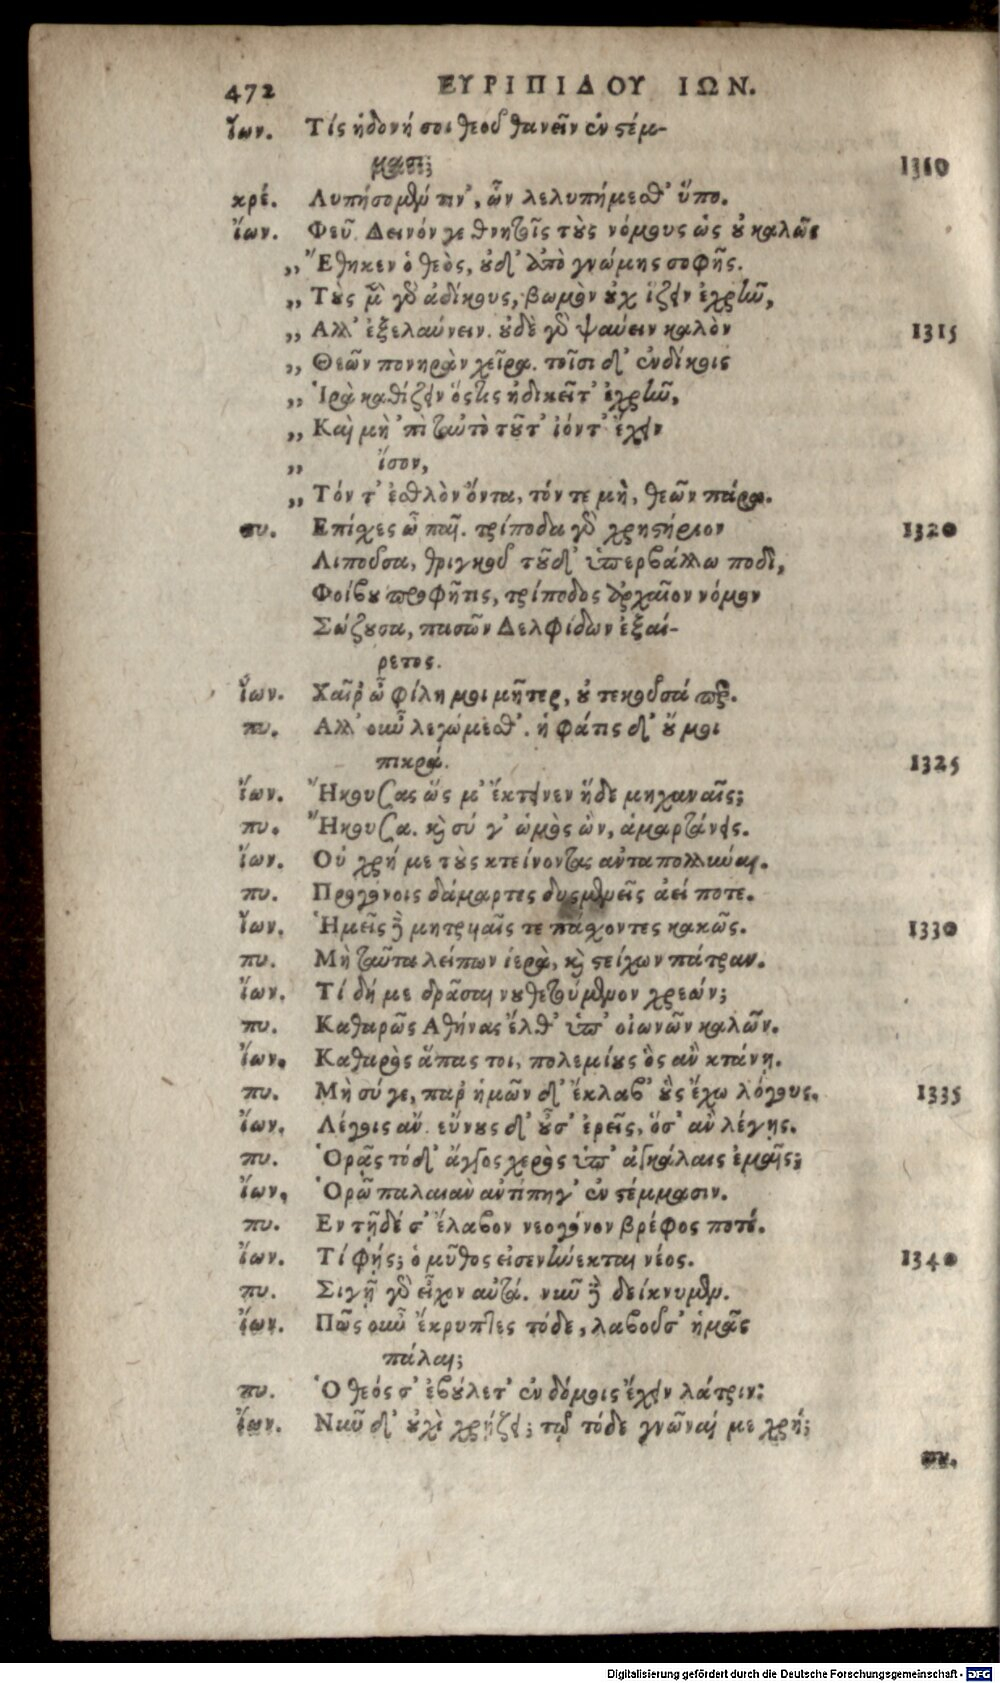 472 ΕΥΡΙΠΙΔΟΥ ΙΩΝ.
Ἴων. Τίς ἡδονή σοι θεοῦ θανεῖν ἐν στέμ-
μασι; 1310
κρέ. Λυπήσομέν τιν', ὧν λελυπήμεσθ' ὕπο.
Ἴων. Φεῦ. Δεινόν γε θνητοῖς τοὺς νόμους ὡς οὐ καλῶς
,, Ἔθηκεν ὁ θεὸς, οὐδ' ἀπὸ γνώμης σοφῆς.
,, Τοὺς μὲν γὰρ ἀδίκους, βωμὸν οὐχ ἵζειν ἐχρῆν,
,, Αλλ' ἐξελαύνειν. οὐδὲ γὰρ ψαύειν καλὸν 1315
,, Θεῶν πονηρὰν χεῖρα. τοῖσι δ' ἐνδίκοις
,, Ἱρὰ καθίζειν ὅστις ἠδικεῖτ' ἐχρῆν,
,, Καὶ μὴ 'πὶ ταὐτὸ τοῦτ' ἰόντ' ἔχειν
,, ἴσον,
,, Τόν τ' ἐσθλὸν ὄντα, τόν τε μὴ, θεῶν πάρα.
πυ. Επίχες ὦ παῖ. τρίποδα γὰρ χρηστήριον 1320
Λιποῦσα, θριγκοῦ τοῦδ' ὑπερβάλλω ποδὶ,
Φοίβου προφῆτις, τρίποδος ἀρχαῖον νόμον
Σώζουσα, πασῶν Δελφίδων ἐξαί-
ρετος.
Ἴων. Χαῖρ' ὦ φίλη μοι μῆτερ, οὐ τεκοῦσά περ.
πυ. Αλλ' οὖν λεγώμεσθ'. ἡ φάτις δ' οὔ μοι
πικρά. 1325
Ἴων. Ἤκουσας ὥς μ' ἔκτεινεν ἥδε μηχαναῖς;
πυ. Ἤκουσα. καὶ σύ γ' ὠμὸς ὢν, ἁμαρτάνεις.
Ἴων. Οὐ χρή με τοὺς κτείνοντας ἀνταπολλύναι.
πυ. Προγόνοις δάμαρτες δυσμενεῖς ἀεί ποτε.
Ἴων. Ἡμεῖς δὲ μητρυιαῖς τε πάσχοντες κακῶς. 1330
πυ. Μὴ ταῦτα λείπων ἱερὰ, καὶ στείχων πάτραν.
Ἴων. Τί δή με δρᾶσαι νουθετούμενον χρεών;
πυ. Καθαρῶς Αθήνας ἔλθ' ὑπ' οἰωνῶν καλῶν.
Ἴων. Καθαρὸς ἅπας τοι, πολεμίους ὃς ἂν κτάνῃ.
πυ. Μὴ σύ γε, παρ' ἡμῶν δ' ἔκλαβ' οὓς ἔχω λόγους. 1335
Ἴων. Λέγοις ἄν. εὔνους δ' οὖσ' ἐρεῖς, ὅσ' ἂν λέγῃς.
πυ. Ὁρᾷς τόδ' ἄγγος χερὸς ὑπ' ἀγκάλαις ἐμαῖς;
Ἴων. Ὁρῶ παλαιὰν ἀντίπηγ' ἐν στέμμασιν.
πυ. Εν τῇδέ σ' ἔλαβον νεογόνον βρέφος ποτέ.
Ἴων. Τί φής; ὁ μῦθος εἰσενήνεκται νέος. 1340
πυ. Σιγῇ γὰρ εἶχον αὐτά. νῦν δὲ δείκνυμεν.
Ἴων. Πῶς οὖν ἔκρυπτες τόδε, λαβοῦσ' ἡμᾶς
πάλαι;
πυ. Ὁ θεός σ' ἐβούλετ' ἐν δόμοις ἔχειν λάτριν:
Ἴων. Νῦν δ' οὐχὶ χρῄζει; τῷ τόδε γνῶναί με χρή;
πυ.
Digitalisierung gefördert durch die Deutsche Forschungsgemeinschaft - DFG